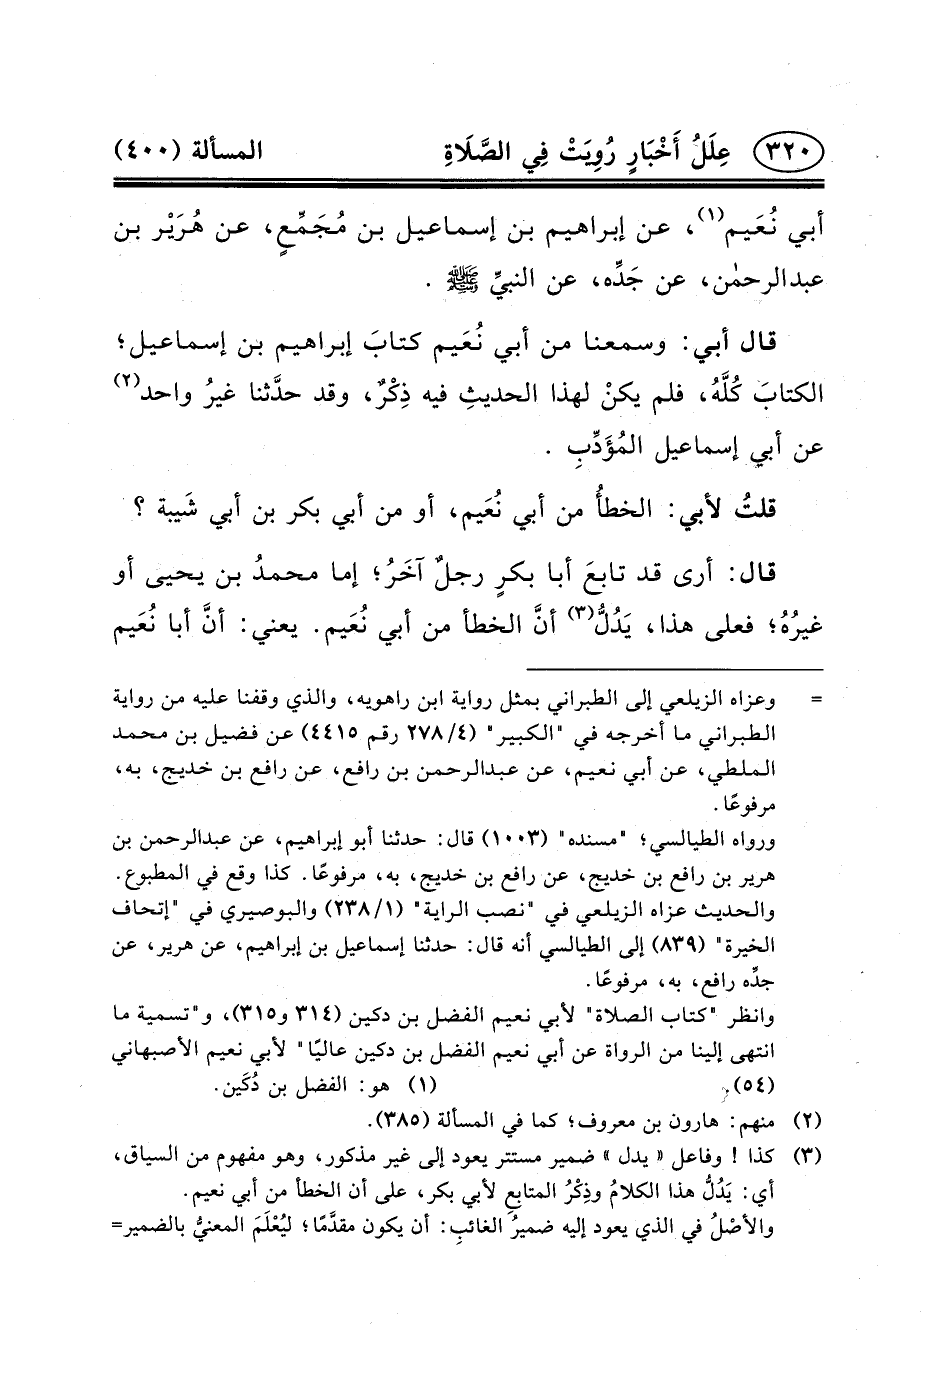 ٣٢٠ عِلَلُ أَخْبَارٍ رُوِيَتْ فِي الصَّلَاةِ المسألة (٤٠٠)
أبي نُعَيم(١)، عن إبراهيم بن إسماعيل بن مُجَمِّعٍ، عن هُرَيْر بن
عبدالرحمٰن، عن جَدِّه، عن النبيِّ ﷺ .
قال أبي: وسمعنا من أبي نُعَيم كتابَ إبراهيم بن إسماعيل؛
الكتابَ كُلَّهُ، فلم يكنْ لهذا الحديثِ فيه ذِكْرٌ، وقد حدَّثنا غيرُ واحد(٢)
عن أبي إسماعيل المُؤَدِّبِ .
قلتُ لأبي: الخطأُ من أبي نُعَيم، أو من أبي بكر بن أبي شَيبة ؟
قال: أرى قد تابعَ أبا بكرٍ رجلٌ آخَرُ؛ إما محمدُ بن يحيى أو
غيرُهُ؛ فعلى هذا، يَدُلُّ(٣) أنَّ الخطأ من أبي نُعَيم. يعني: أنَّ أبا نُعَيم
= وعزاه الزيلعي إلى الطبراني بمثل رواية ابن راهويه، والذي وقفنا عليه من رواية
الطبراني ما أخرجه في "الكبير" (٤/ ٢٧٨ رقم ٤٤١٥) عن فضيل بن محمد
الملطي، عن أبي نعيم، عن عبدالرحمن بن رافع، عن رافع بن خديج، به،
مرفوعًا.
ورواه الطيالسي؛ "مسنده" (١٠٠٣) قال: حدثنا أبو إبراهيم، عن عبدالرحمن بن
هرير بن رافع بن خديج، عن رافع بن خديج، به، مرفوعًا. كذا وقع في المطبوع.
والحديث عزاه الزيلعي في "نصب الراية" (٢٣٨/١) والبوصيري في "إتحاف
الخيرة" (٨٣٩) إلى الطيالسي أنه قال: حدثنا إسماعيل بن إبراهيم، عن هرير، عن
جدِّه رافع، به، مرفوعًا.
وانظر "كتاب الصلاة" لأبي نعيم الفضل بن دكين (٣١٤ و٣١٥)، و"تسمية ما
انتهى إلينا من الرواة عن أبي نعيم الفضل بن دكين عاليًا" لأبي نعيم الأصبهاني
(٥٤). (١) هو: الفضل بن دُكَين.
(٢) منهم: هارون بن معروف؛ كما في المسألة (٣٨٥).
(٣) كذا ! وفاعل « يدل » ضمير مستتر يعود إلى غير مذكور، وهو مفهوم من السياق،
أي: يَدُلُّ هذا الكلامُ وذِكْرُ المتابعِ لأبي بكر، على أن الخطأ من أبي نعيم.
والأصْلُ في الذي يعود إليه ضميرُ الغائبِ: أن يكون مقدَّمًا؛ ليُعْلَمَ المعنيُّ بالضمير=